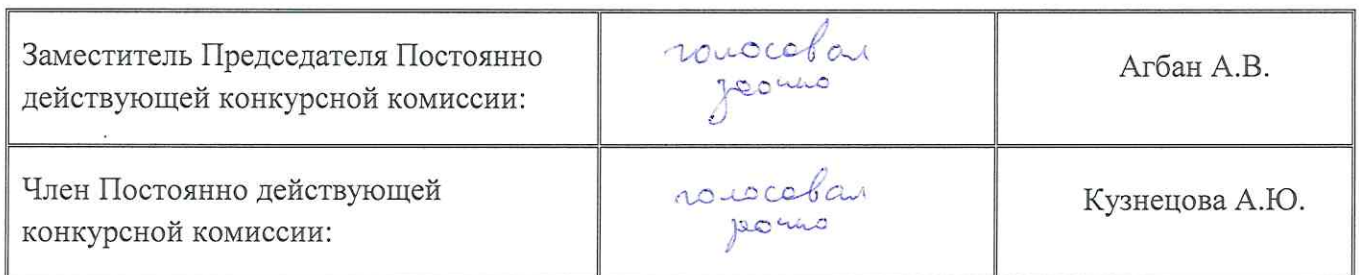 Заместитель Председателя Постоянно
действующей конкурсной комиссии:
голосовал
заочно
Агбан А.В.
Член Постоянно действующей
конкурсной комиссии:
голосовал
заочно
Кузнецова А.Ю.